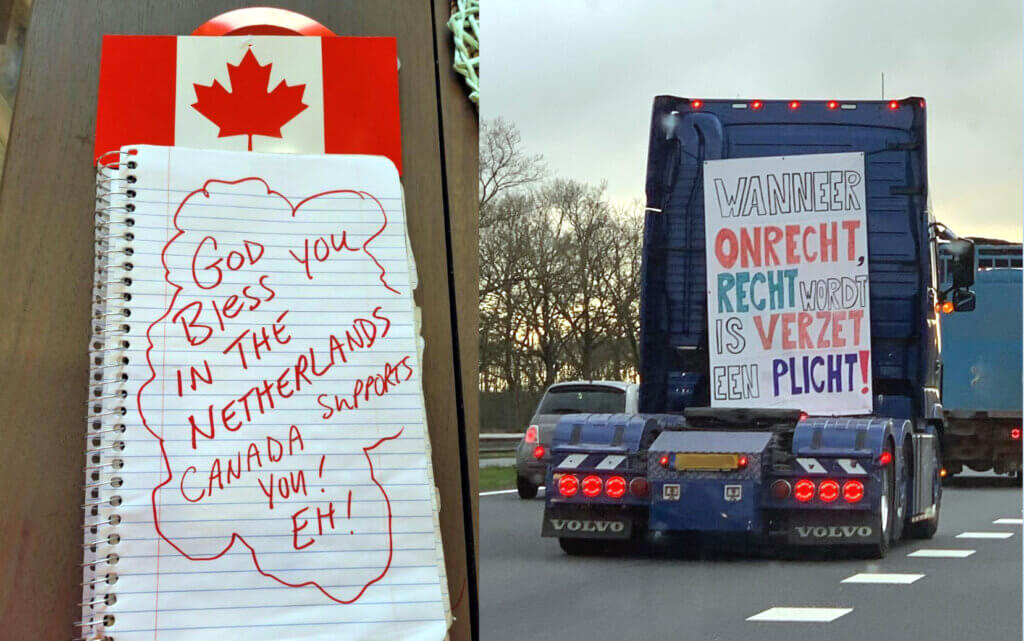 GOD YOU
Bless
IN THE
NETHERLANDS
CANADA SUPPORTS
YOU!
EH!
WANNEER
ONRECHT,
RECHT WORDT
IS VERZET
EEN PLICHT!
VOLVO
VOLVO